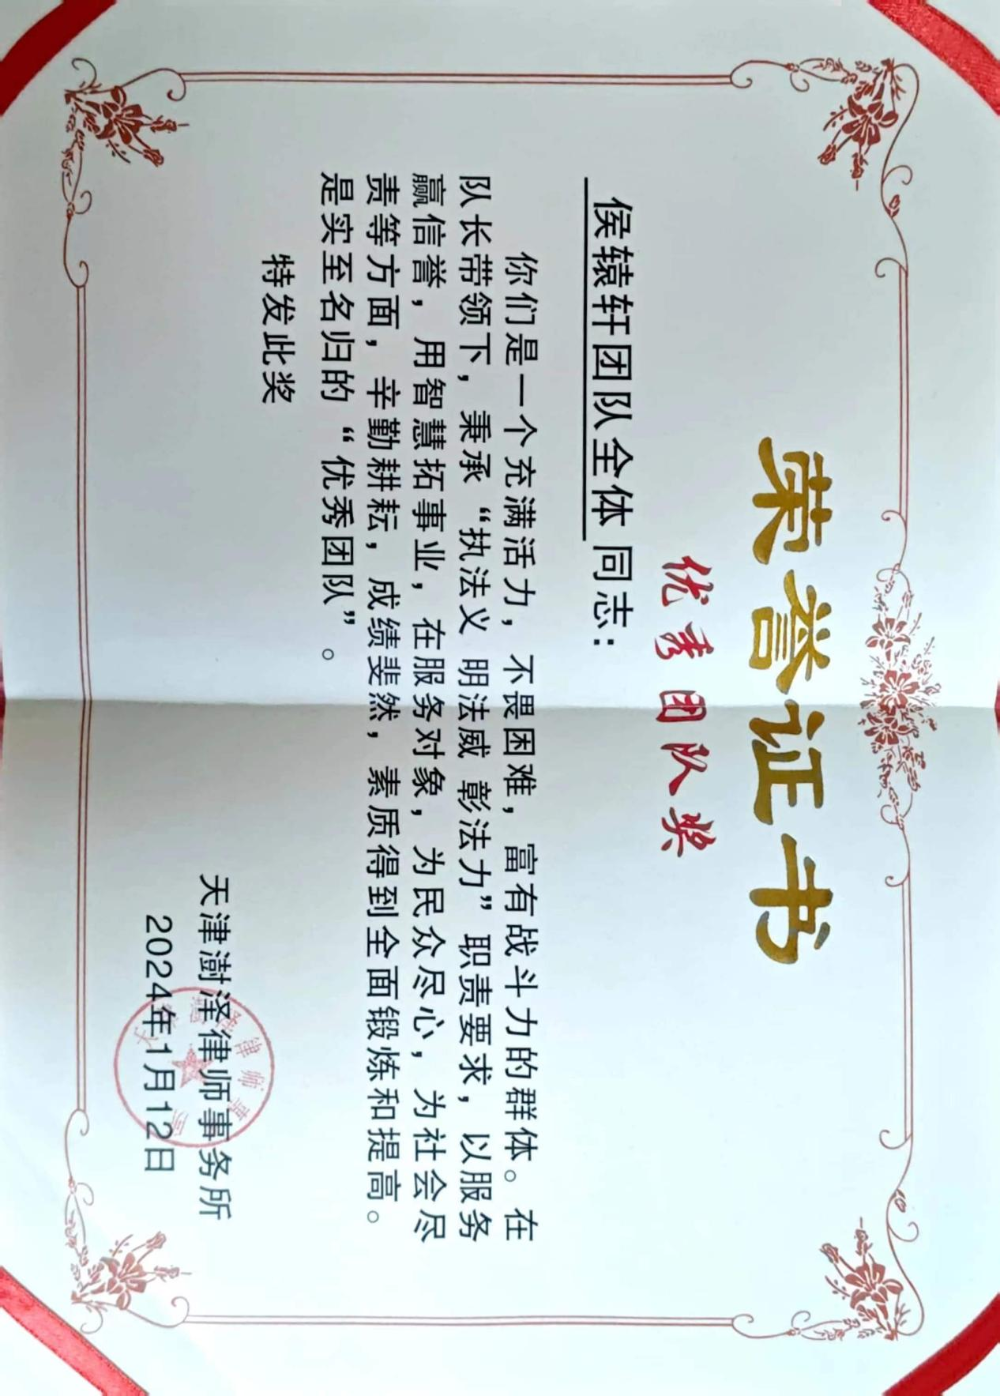 荣誉证书
优秀团队奖
侯辕轩团队全体 同志：
你们是一个充满活力，不畏困难，富有战斗力的群体。在
队长带领下，秉承“执法义 明法威 彰法力”职责要求，以服务
赢信誉，用智慧拓事业，在服务对象，为民众尽心，为社会尽
责等方面，辛勤耕耘，成绩斐然，素质得到全面锻炼和提高。
是实至名归的“优秀团队”。
特发此奖
天津澍泽律师事务所
2024年1月12日